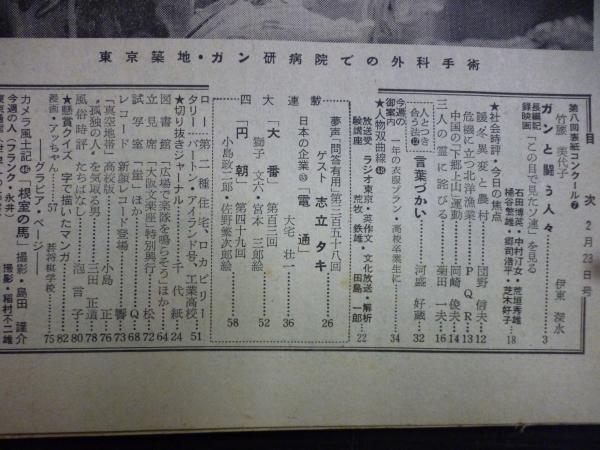 東京築地・ガン研病院での外科手術
目次 2月23日号
第八回表紙コンクール⑦
竹腰美代子 伊東深水
ガンと闘う人々 3
長編記録映画「この目で見たソ連」を見る
石田博英・中村汀女・荒垣秀雄
桶谷繁雄・郷司浩平・芝木好子 18
★社会時評・今日の焦点
暖冬異変と農村 団野信夫 12
危機に立つ北洋漁業 PQR 13
中国の「下郷上山」運動 岡崎俊夫 14
三人の霊に詫びる 菊田一夫 16
人とつき合う法⑫ 言葉づかい 河盛好蔵 32
今週の御案内 一年の衣服プラン・高校卒業生に 34
★人物双曲線㊽
放送受験講座 ラジオ東京・英作文 文化放送・解析
荒牧鉄雄・田島一郎 22
連載
夢声「問答有用」第三百五十八回
ゲスト 志立タキ 26
日本の企業㊾「電通」 大宅壮一 36
大番 第百三回
獅子文六・宮本三郎絵 52
四「円朝」 第四十九回
小島政二郎・佐野繁次郎絵 58
ロータリー 第二種住宅、ロカビリー
バートン・アイランド号、工業高校 51
★切り抜きジャーナル 千代紙 24
図書館 「広場で楽隊を鳴らそう」ほか 64
立見席 「大阪文楽座」特別興行 松 72
試写室 「崖」ほか Q 68
レコード 新版レコード登場 響 73
「真空地帯」高校版 小島正 76
"孤独の人"を気取る男 三田正道 78
風俗時評 たちばなし 泡言子 80
★懸賞クイズ 字で描いたマンガ 82
漫画・アッちゃん 57 芸将棋学校 75
――グラビア・ページ――
カメラ風土記㊻「根室の馬」 撮影・島田謹介
今週の人(フランク・永井) 撮影・稲村不二雄